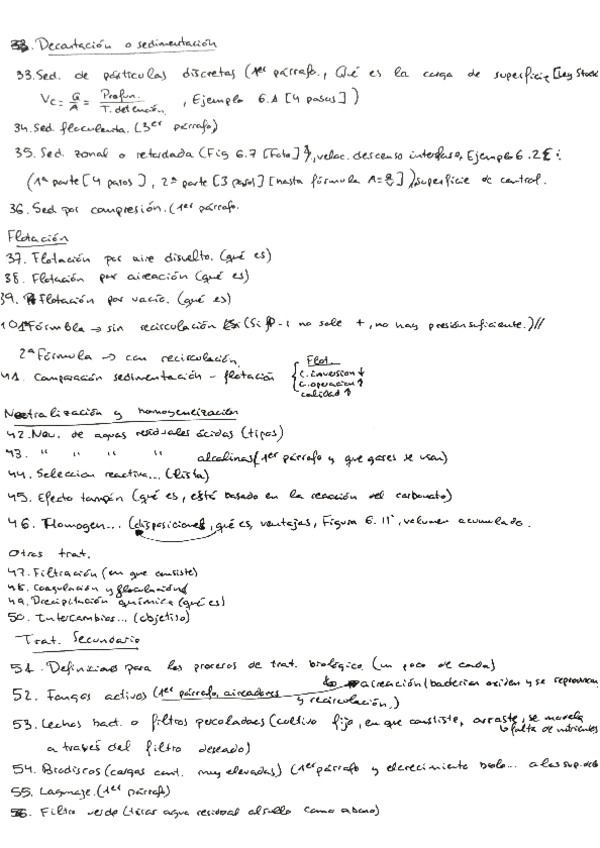 Decantación o sedimentación
33. Sed. de partículas discretas (1er párrafo., Qué es la carga de superficie, [Ley Stock
Vc = Q/A = Profun./T. detención , Ejemplo 6.1 [4 pasos])
34. Sed floculenta. (3er párrafo)
35. Sed. zonal o retardada (Fig 6.7 [Foto]), veloc. descenso interfase, Ejemplo 6.2 :
(1ª parte [4 pasos], 2ª parte [3 pasos] [hasta fórmula A= ]), superficie de control.
36. Sed por compresión. (1er párrafo.
Flotación
37. Flotación por aire disuelto. (qué es)
38. Flotación por aireación (qué es)
39. Flotación por vacío. (qué es)
1ª Fórmula → sin recirculación (Si no sale +, no hay presión suficiente.)//
2ª Fórmula → con recirculación.
41. Comparación sedimentación - flotación
Flot.
C. inversion ↓
C. operacion ↑
calidad ↑
Neutralización y homogeneización
42. Neu. de aguas residuales ácidas (tipos)
43. " " " " alcalinas (1er párrafo y que gases se usan)
44. Seleccion reactivo... (lista)
45. Efecto tampón (qué es, está basado en la reacción del carbonato)
46. Homogen... (disposiciones, qué es, ventajas, Figura 6.11, volumen acumulado.
Otros trat.
47. Filtración (en que consiste)
48. Coagulación y floculación
49. Precipitación química (qué es)
50. Intercambios... (objetivo)
Trat. Secundario
51. Definiciones para los procesos de trat. biológico. (un poco de cada)
52. Fangos activos (1er párrafo, aireadores y recirculación.)
aireación (bacterias oxiden y se reproduzcan
53. Lechos bact. o filtros percoladores (cultivo fijo, en que consiste, arrastre, se
a través del filtro deseado)
falta de nutrientes
54. Biodiscos (cargas cont. muy elevadas) (1er párrafo y el crecimiento biolo... a las sup.
55. Lagunaje. (1er párrafo)
56. Filtro verde (tirar agua residual al suelo como abono)